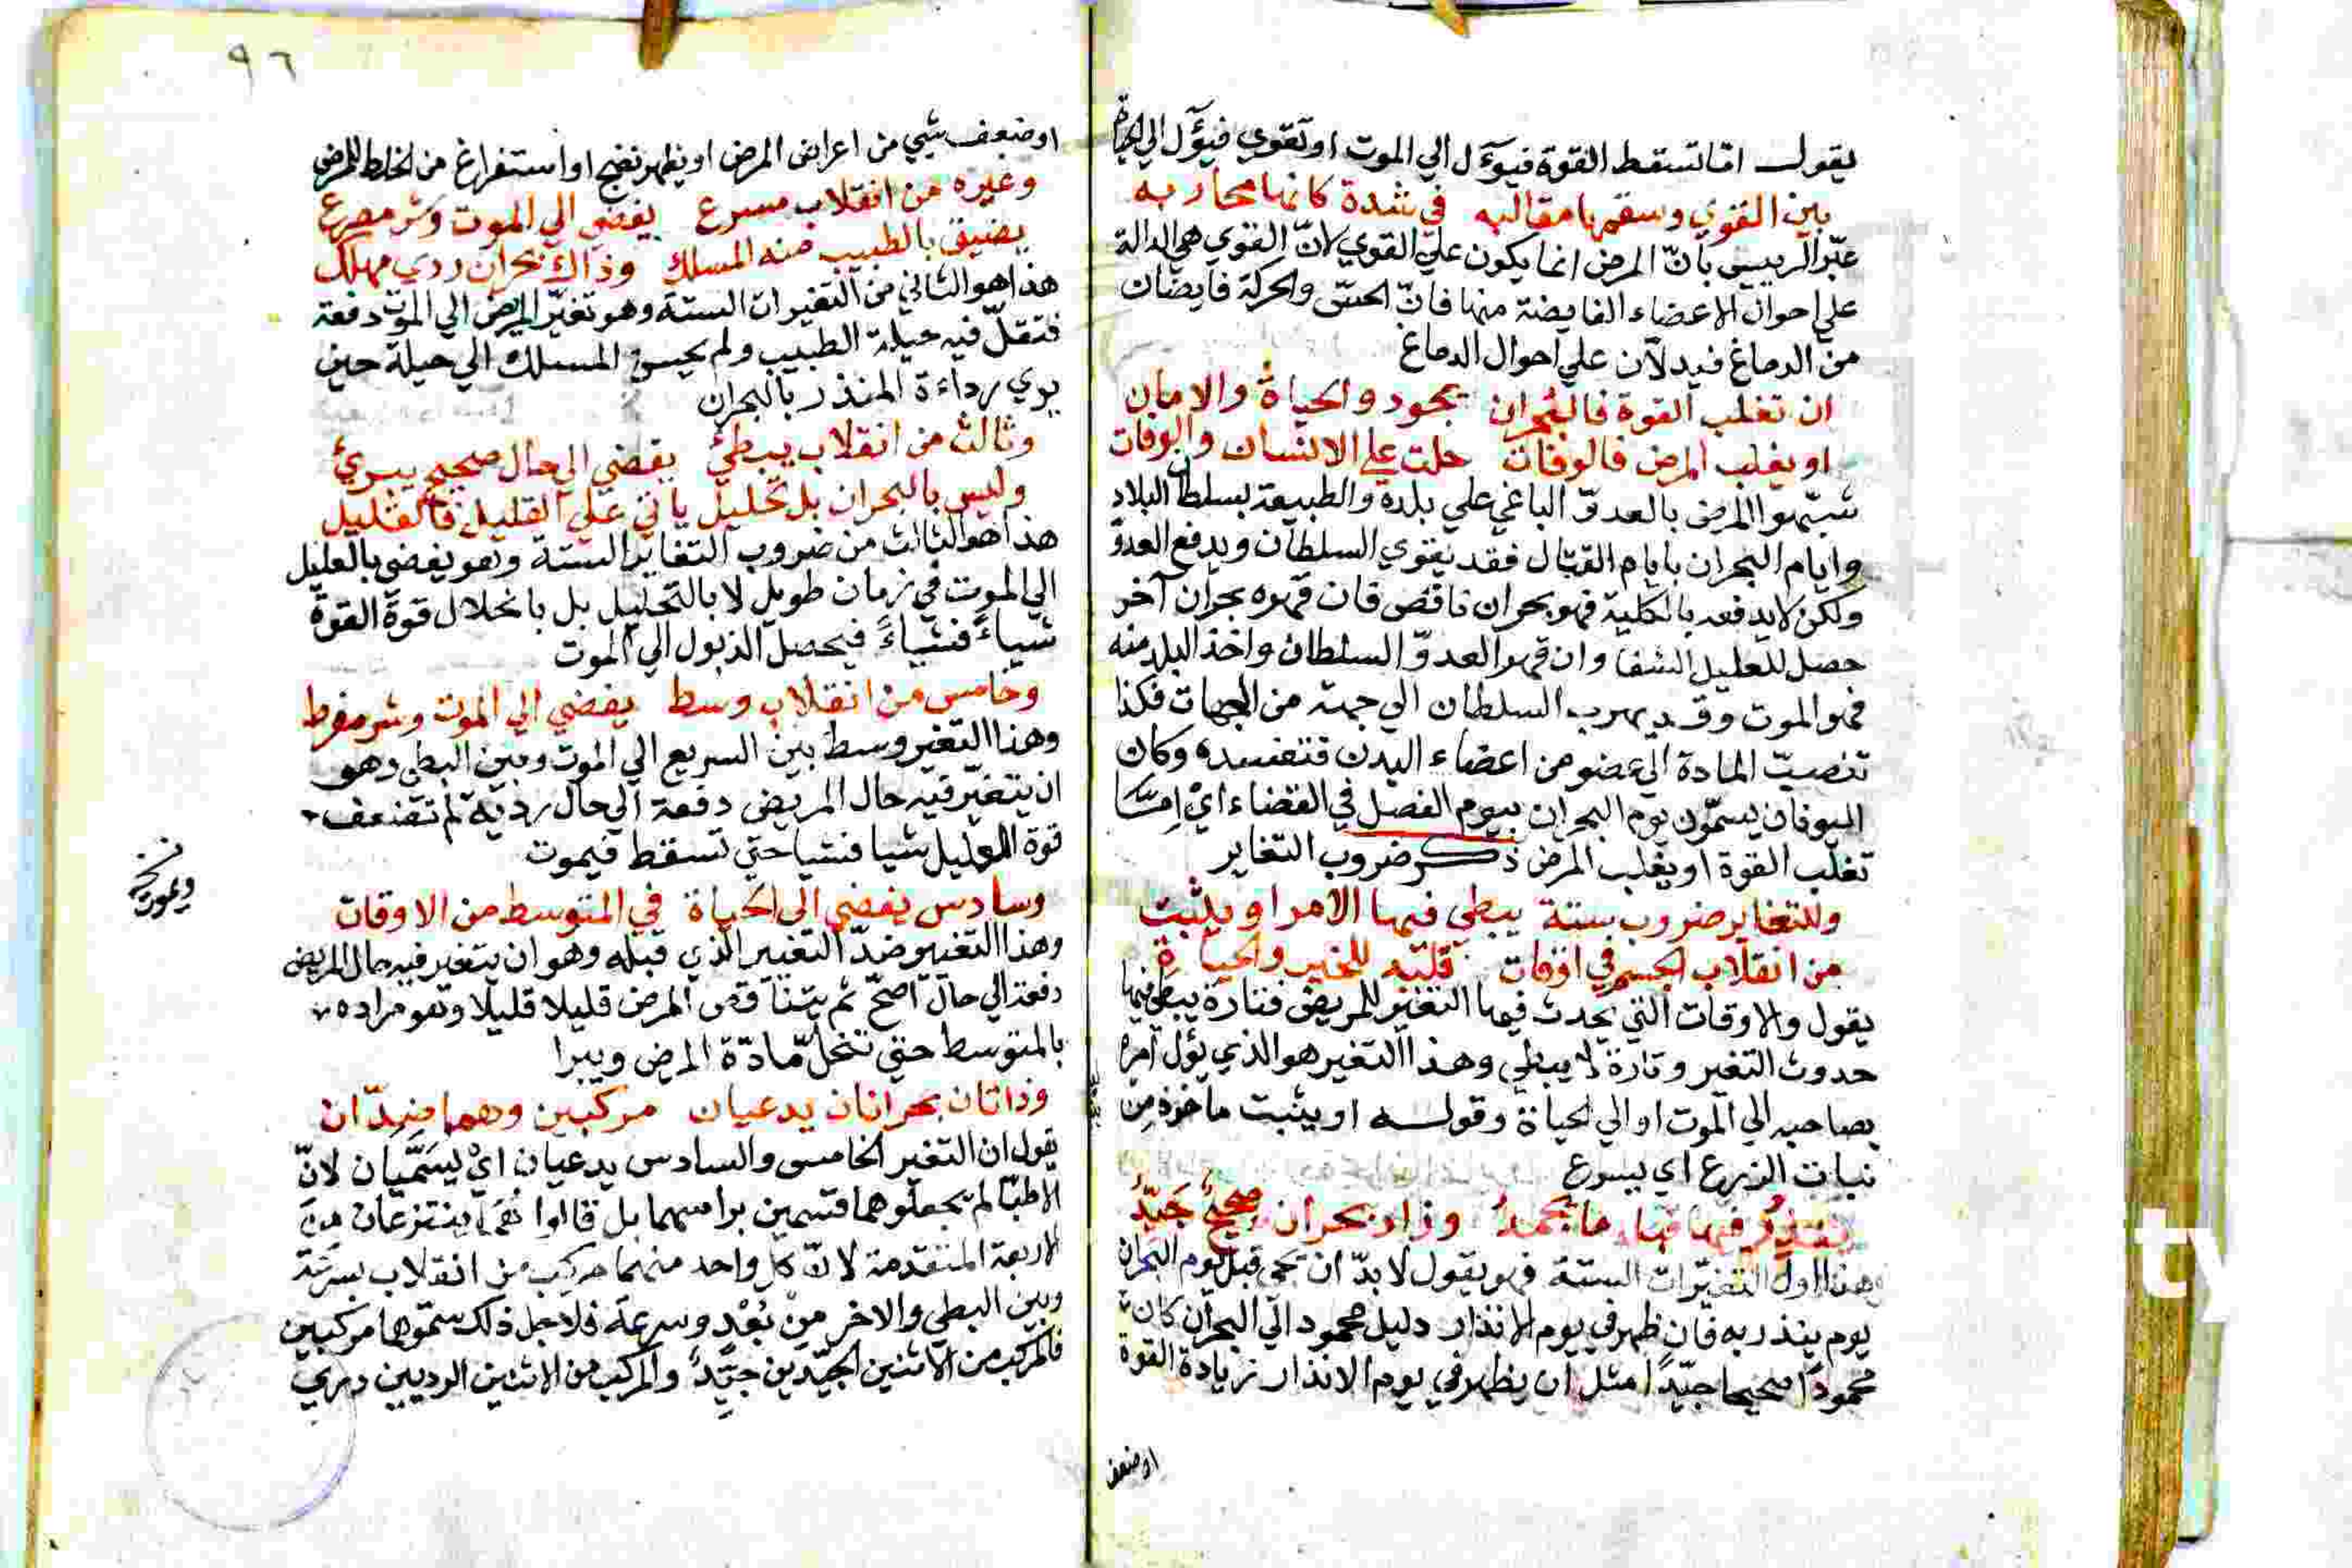 يقول اما تسقط القوة فيوٓل الي الموت او تقوي فيوٓل الي الحياة
بين القوي وسقمها مقالبه في شدة كانها محاربه
عبّر الرييس بانّ المرض انما يكون علي القوي لانّ القوي هي الدالة
علي احوال الاعضاء الفايضة منها فانّ الحسّ والحركة فايضان
من الدماغ فيدلان علي احوال الدماغ
ان تغلب القوة فالبحران بجود والحياة والامان
او يغلب المرض فالوفات حلت علي الانسان والوفات
شبّهوا المرض بالعدوّ الباغي علي بلدة والطبيعة بسلطان البلاد
وايام البحران بايام القتال فقد يقوي السلطان ويدفع العدوّ
ولكن لا يدفعه بالكلية فهو بحران ناقص فان قهره بحران آخر
حصل للعليل الشفا وان قهر العدوّ السلطان واخذ البلد منه
فهو الموت وقد يهرب السلطان الي جهة من الجهات فكذا
تنصبّ المادة الي عضو من اعضاء البدن فتفسده وكان
اليونان يسمّون يوم البحران بيوم الفصل في القضاء اي امّا
تغلب القوة او يغلب المرض ذكر ضروب التغاير
وللتغاير ضروب ستة يبطي فيها الامر او يثبت
من انقلاب الجسم في اوقات قلبه للخير والحياة
يقول والاوقات التي يحدث فيها التغير للمريض فتارة يبطي فيها
حدوث التغير وتارة لا يبطي وهذا التغير هو الذي يؤل امره
بصاحبه الي الموت او الي الحياة وقوله او يثبت ماخوذ من
نبات الزرع اي يسرع
وذاك بحران صحيح جيّد
وهذا اول التغيّرات الستة فهو يقول لا بدّ ان تجي قبل يوم البحران
يوم ينذر به فان ظهر في يوم الانذار دليل محمود الي البحران كان
محمودا صحيحا جيّدا مثل ان يظهر في يوم الانذار زيادة القوة
او ضعف
٩٦
او ضعف شي من اعراض المرض او يظهر نضج او استفراغ من الخلط الممرض
وغيره من انقلاب مسرع يفضي الي الموت وشر مصرع
يضيق بالطبيب منه المسلك وذاك بحران ردي مهلك
هذا هو الثاني من التغيرات الستة وهو تغيّر المريض الي الموت دفعة
فتقلّ فيه حيلة الطبيب ولم يحسن المسلك الي حيلة حين
يري رداءة المنذر بالبحران
وثالث من انقلاب يبطئ يفضي الي حال صحيح يبرئ
وليس بالبحران بل تحليل ياتي علي القليل فالقليل
هذا هو الثالث من ضروب التغاير الستة وهو يفضي بالعليل
الي الموت في زمان طويل لا بالتحليل بل بانحلال قوة القوة
شياءً فشياءً فيحصل الذبول الي الموت
وخامس من انقلاب وسط يفضي الي الموت وشر مفرط
وهذا التغير وسط بين السريع الي الموت وبين البطي وهو
ان يتغيّر فيه حال المريض دفعة الي حال ردية ثم تضعف
قوة العليل شيا فشيا حتي تسقط فيموت
ويموت نسخه
وسادس يفضي الي الحياة في المتوسط من الاوقات
وهذا التغيير ضدّ التغيير الذي قبله وهو ان يتغير فيه حال المريض
دفعة الي حال اصحّ ثم يتناقص المرض قليلا قليلا وهو مراده
بالمتوسط حتي تنحلّ مادّة المرض ويبرا
وذاتان بحرانان يدعيان مركبين وهما ضدّان
يقول ان التغير الخامس والسادس يدعيان اي يسمّيان لانّ
الاطبّا لم يجعلوهما قسمين براسهما بل قالوا ينتزعان من
الاربعة المتقدمة لانّ كل واحد منهما مركب من انقلاب بسرعة
وبين البطي والاخر من بُعْد وسرعة فلاجل ذلك سمّوهما مركبين
فالمركب من الاثنين الجيّدين جيّد والمركب من الاثنين الرديين ردي